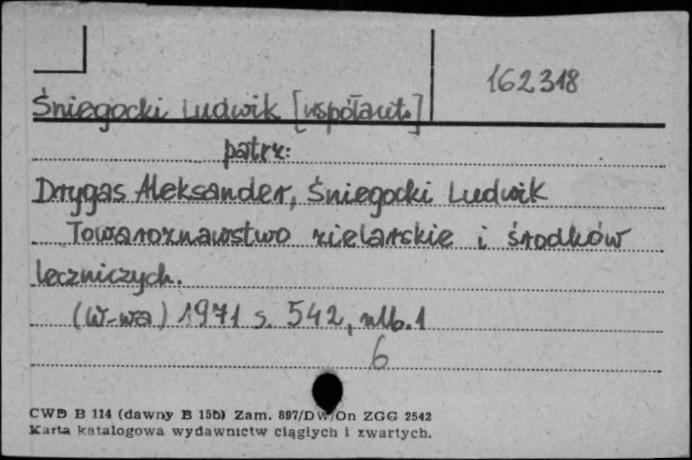 162318
Śniegocki Ludwik [współaut.]
patrz:
Drygas Aleksander, Śniegocki Ludwik
Towaroznawstwo zielarskie i środków
leczniczych.
(W-wa) 1971 s. 542, nlb. 1
6
CWD B 114 (dawny B 15b) Zam. 897/DW/On ZGG 2542
Karta katalogowa wydawnictw ciągłych i zwartych.